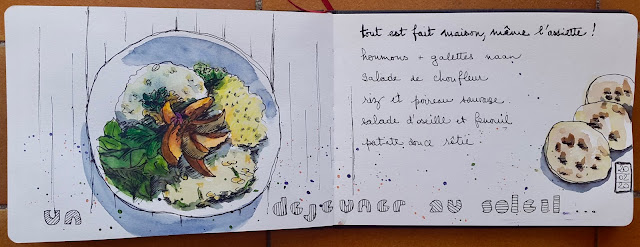 tout est fait maison, même l'assiette !
houmous + galettes naan
salade de choufleur
riz et poireau sauvage
salade d'oseille et fenouil
patate douce rôtie
un déjeuner au soleil...